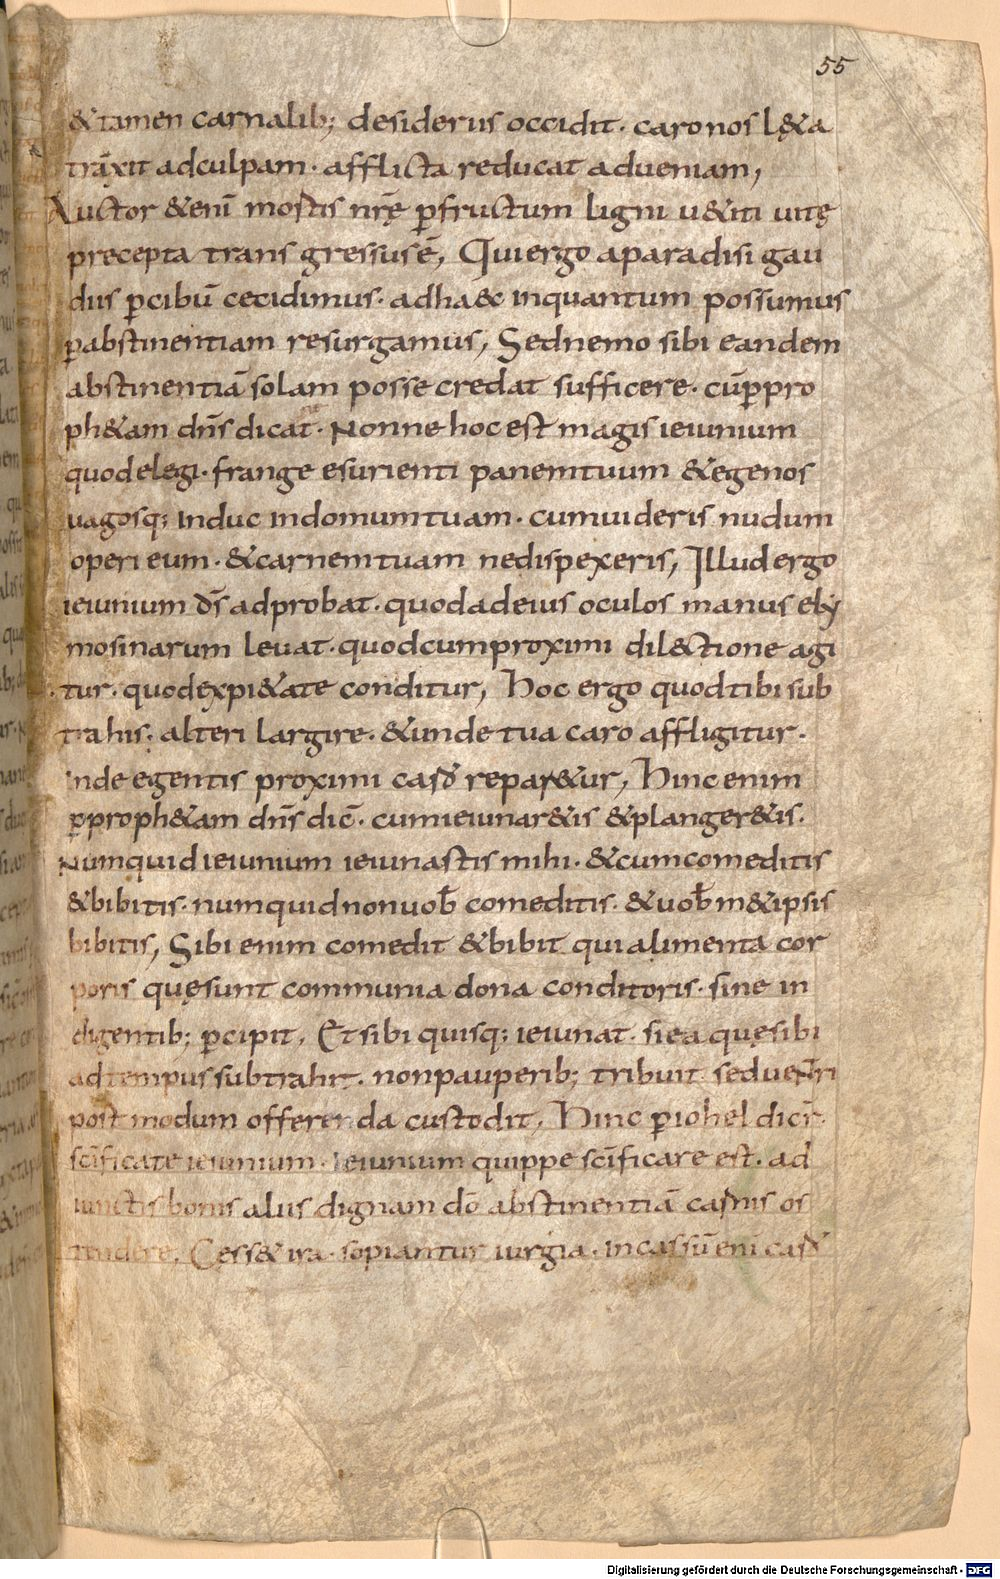 55
&tamen carnalib; desideriis occidit· caro nos l&a
traxit adculpam· afflicta reducat adueniam,
Auctor &eni mortis nrę pfructum ligni u&iti uitę
precepta transgressus ē, Qui ergo aparadisi gau
diis pcibū cecidimus· adhaec inquantum possumus
pabstinentiam resurgamus, Sednemo sibi eandem
abstinentiā solam posse credat sufficere· cūppro
ph&am dn̄s dicat· Nonne hoc est magis ieiunium
quodelegi· frange esurienti panemtuum &egenos
uagosq; induc indomumtuam· cumuideris nudum
operi eum· &carnemtuam nedispexeris, Illud ergo
ieiunium ds̄ adprobat· quodadeius oculos manus ely
mosinarum leuat· quodcumproximi dil&tione agi
tur· quodexpi&ate conditur, Hoc ergo quodtibi sub
trahis· alteri largire· &unde tua caro affligitur·
inde egentis proximi caro repar&ur, Hinc enim
pproph&am dn̄s dic̄· cumieiunar&is &planger&is·
Numquid ieiunium ieiunastis mihi· &cumcomeditis
&bibitis· numquidnonuob̄ comeditis· &uob̄m&ipsis
bibitis, Sibi enim comedit &bibit quialimenta cor
poris quęsunt communia dona conditoris· sine in
digentib; pcipit, Et sibi quisq; ieiunat· si ea quęsibi
adtempus subtrahit· nonpauperib; tribuit seduentri
post modum offerenda custodit, Hinc piohel dicit̄·
sc̄ificate ieiunium· Ieiunium quippe sc̄ificare est· ad
iunctis bonis aliis dignam dō abstinentiā carnis os
tendere, Cess& ira· sopiantur iurgia· Incassū eni caro
Digitalisierung gefördert durch die Deutsche Forschungsgemeinschaft - DFG